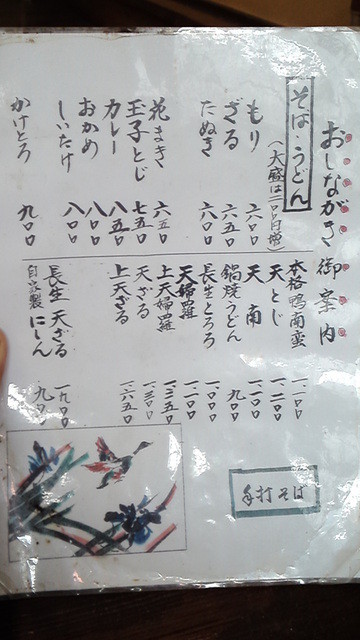 おしながき 御案内
そば・うどん
(大盛は二〇〇円増)
もり 六〇〇
ざる 六五〇
たぬき 六〇〇
花まき 六五〇
玉子とじ 七五〇
カレー 八五〇
おかめ 八〇〇
しいたけ 八〇〇
かけとろ 九〇〇
本格鴨南蛮 一、一〇〇
天とじ 一、二〇〇
天南 一、一〇〇
鍋焼うどん 九〇〇
長生とろろ 一、〇〇〇
天婦羅 一、一〇〇
上天婦羅 一、三五〇
天ざる 一、三〇〇
上天ざる 一、六五〇
長生天ざる 一、九〇〇
自家製 にしん 九〇〇
手打そば